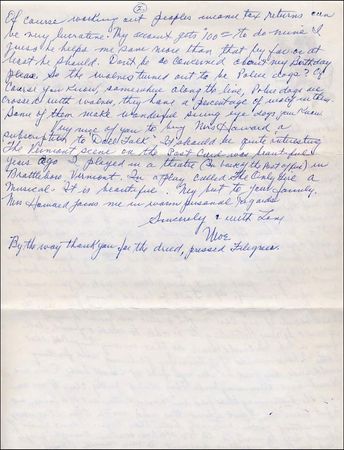 (2)
Of course working out peoples income tax returns can
be very lucrative. My account gets 100= to do mine. I
guess he helps me save more than that by far or at
least he should. Don't be so concerned about my Birthday
please. So the wolves turned out to be Police dogs? Of
Course you know, somewhere along the line, Police dogs are
crossed with wolves, they have a percentage of wolf in them.
Some of them make wonderful seeing eye dogs, you know.
Very nice of you to buy Mrs Howard a
subscription to "Doll Talk". It should be quite interesting.
The Vermont scene on the Post Card was beautiful
years ago I played in a theatre (in the
Brattleboro Vermont. In a play called The Only Girl a
Musical. It is beautiful. My best to your family.
Mrs Howard joins me in warm personal regards
Sincerely & with Love
Moe
By the way thank you for the dried, pressed